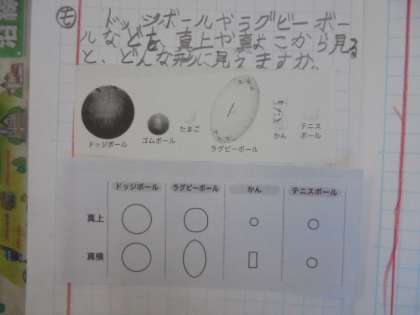 も ドッジボールやラグビーボー
ルなどを、真上や真よこから見る
と、どんな形に見えますか。
ドッジボール
ゴムボール
たまご
ラグビーボール
かん
テニス
ボール
ドッジボール ラグビーボール かん テニスボール
真上
真横